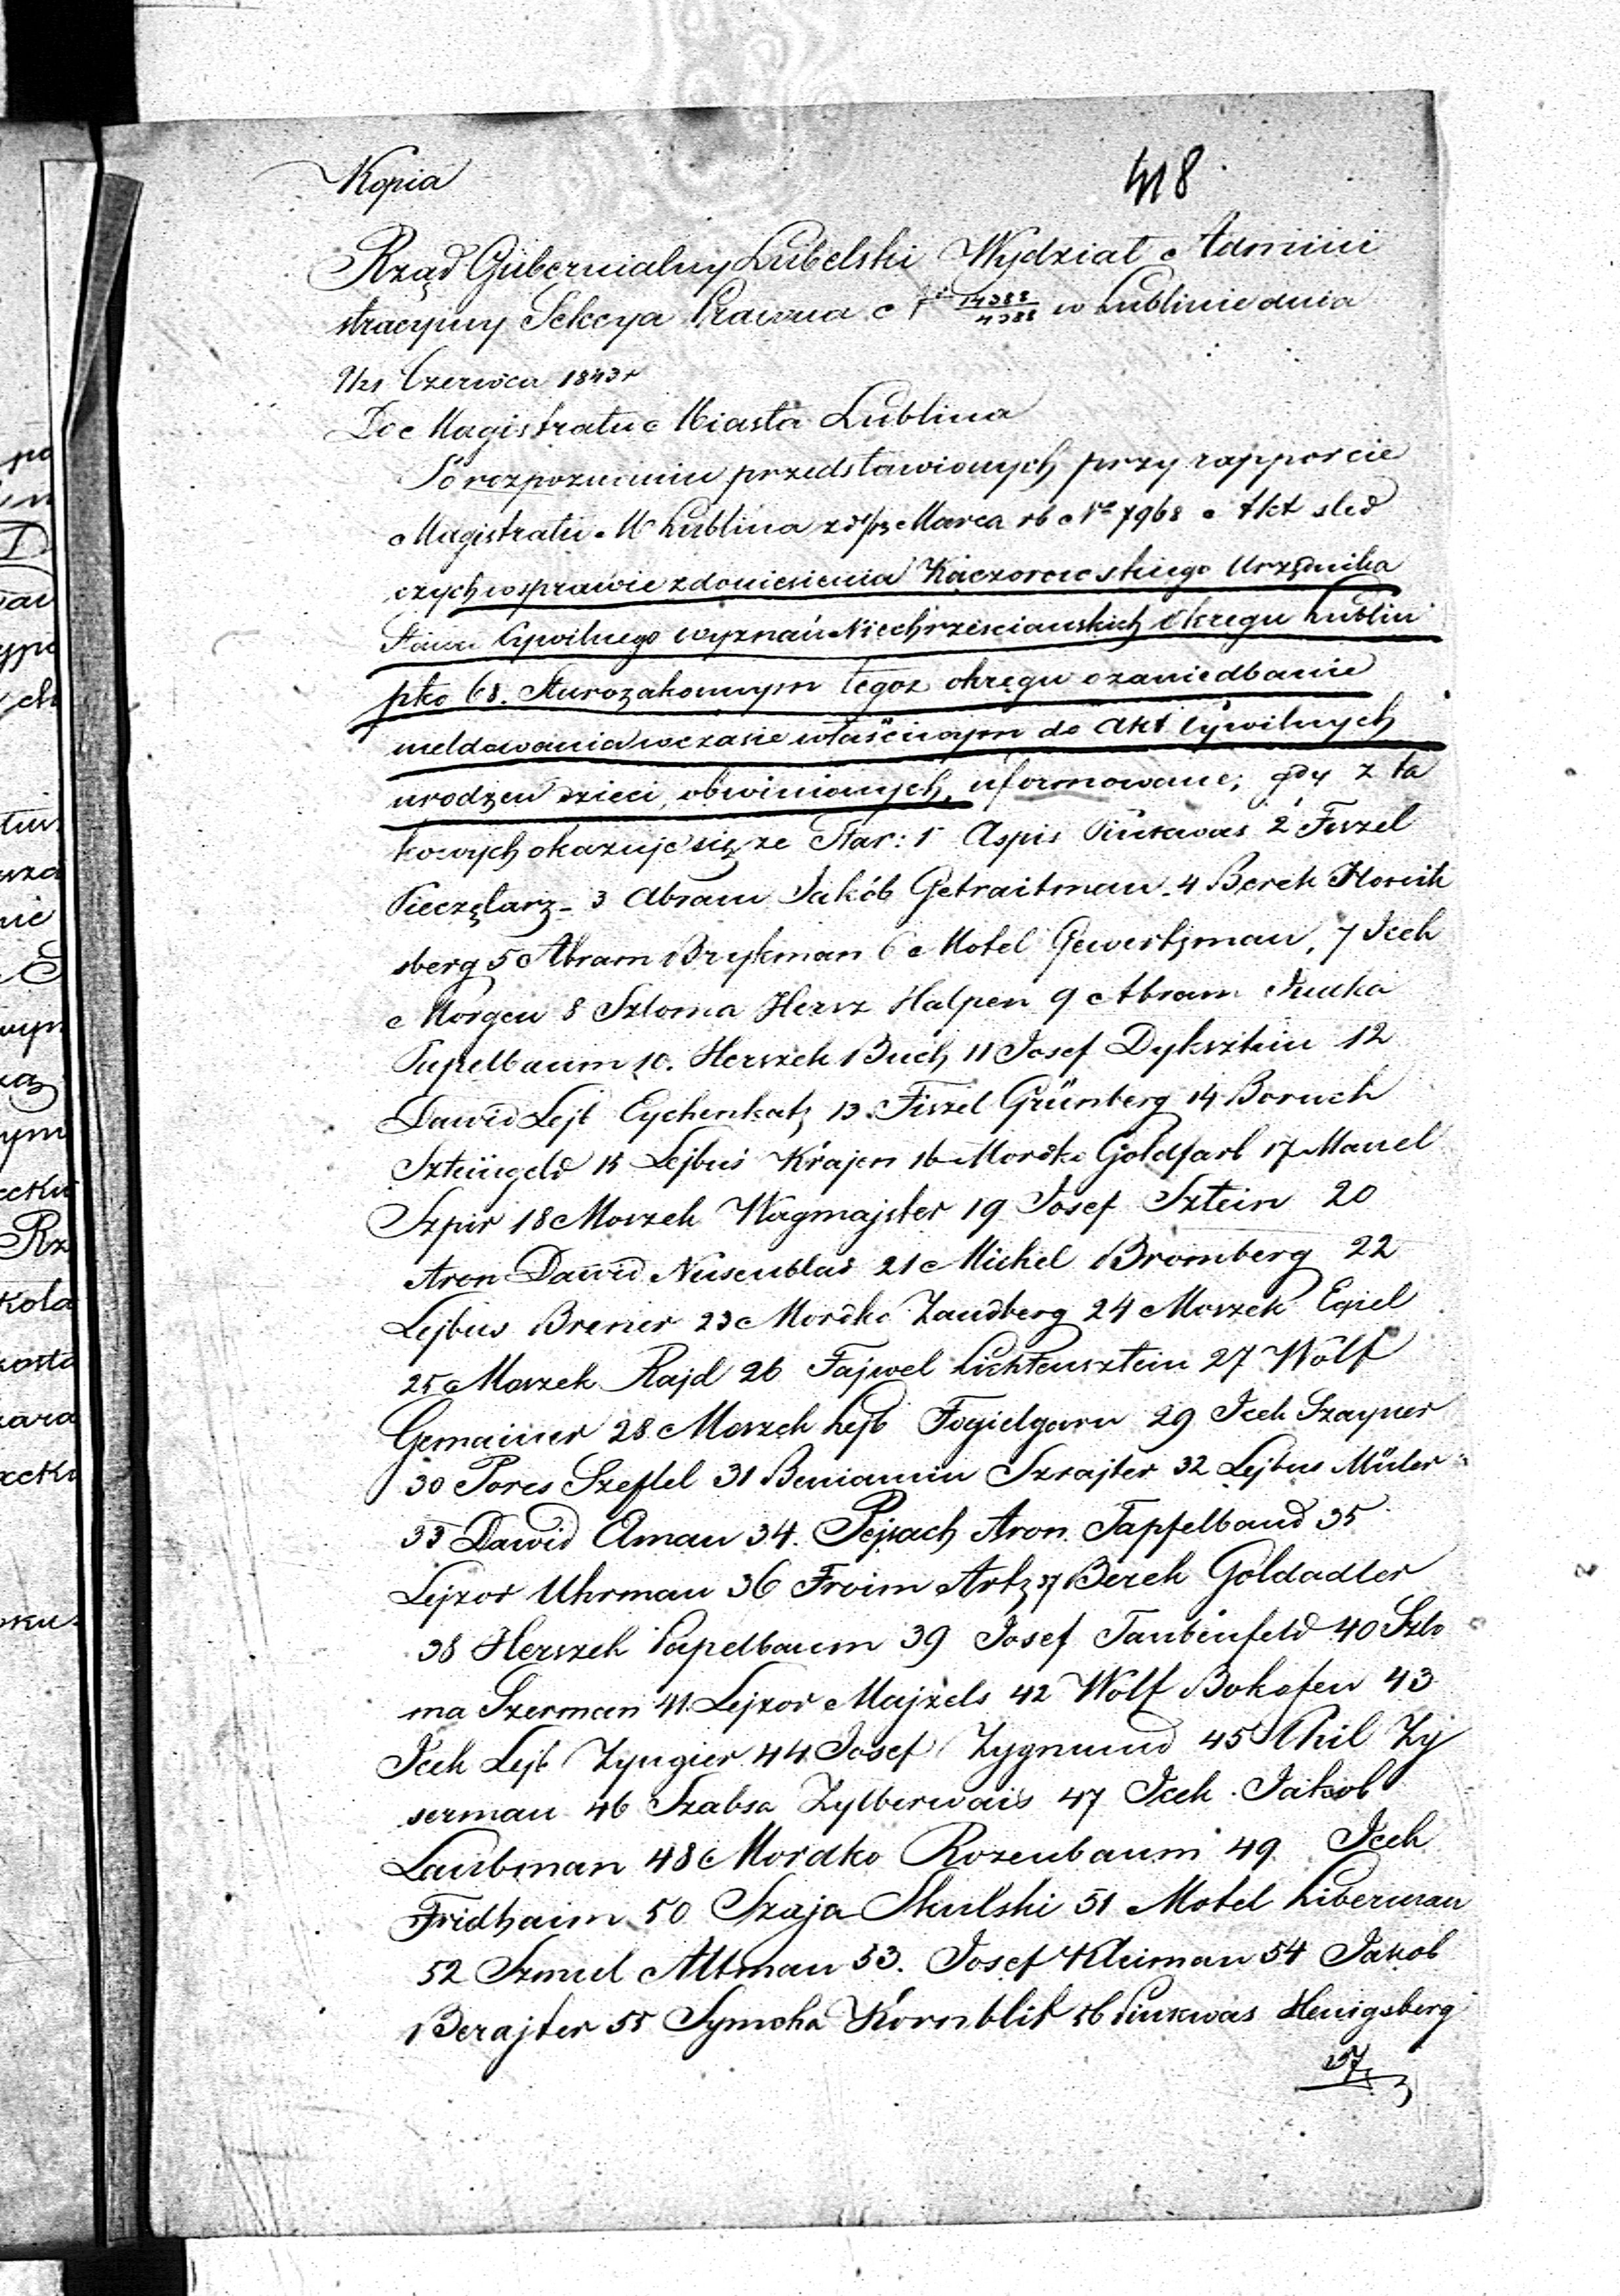 Kopia
418
Rząd Gubernialny Lubelski Wydział Admini
stracyjny Sekcya Prawna w Lublinie dnia
9/21 Czerwca 1843 r
Do Magistratu Miasta Lublina
Po rozpoznaniu przedstawionych przy rapporcie
Magistratu M Lublina z d 1/13 Marca rb Nº 7968 Akt sled
czych w sprawie z doniesienia Kaczorowskiego Urzędnika
Stanu Cywilnego wyznań Niechrześciańskich Okręgu Lublin
pko 68. Starozakonnym tegoż okręgu o zaniedbanie
meldowania w czasie właściwym do Akt Cywilnych
urodzeń dzieci, obwinionych, uformowane; gdy z ta
kowych okazuje się ze Star: 1 Aspis Pinkwas 2 Fiszel
Pieczętarz - 3 Abram Jakób Getraitman - 4 Berek
sberg 5 Abram Brykman 6 Motel Gewertzman, 7 Icek
Morgen 8 Szloma Hersz Halpen 9 Abram Judka
Papelbaum 10. Herszek Buch 11 Josef Dyksztein 12
Dawid Lejb Eychenkatz 13. Fiszel Grünberg 14 Boruch
Szteingeld 15 Lejbus Krajen 16 Mordko Goldfarb 17 Manel
Szpir 18 Moszek Wagmajster 19 Josef Sztein 20
Aron Dawid Nusenblat 21 Michel Bromberg 22
Lejbus Brener 23 Mordko Zandberg 24 Moszek
25 Moszek Rajd 26 Fajwel Lichtensztein 27 Wolf
Gemainer 28 Moszek Lejb Fogielgarn 29 Icek Szayner
30 Pores Szeftel 31 Beniamin Szrajter 32 Lejbus Müler
33 Dawid Aman 34. Pejsach Aron Tapfelband 35
Lejzor Uhrman 36 Froim Artz 37 Berek Goldadler
38 Herszek Papelbaum 39 Josef Taubenfeld 40 Szlo
ma Szerman 41. Lejzor Majzels 42 Wolf Bokofen 43
Icek Lejb Zyngier 44 Josef Zygmund 45 Chil Zy
serman 46 Szabsa Zylberwais 47 Icek Jakob
Laubman 48 Mordko Rozenbaum 49 Icek
Fridhaim 50 Szaja Skulski 51 Motel Liberman
52 Szmul Altman 53. Josef Kleiman 54 Jakob
Berajter 55 Symcha Kornblit 56 Pinkwas Henigsberg
57